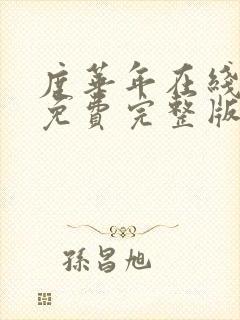 度華年在綫
免費完整版
孫昌旭